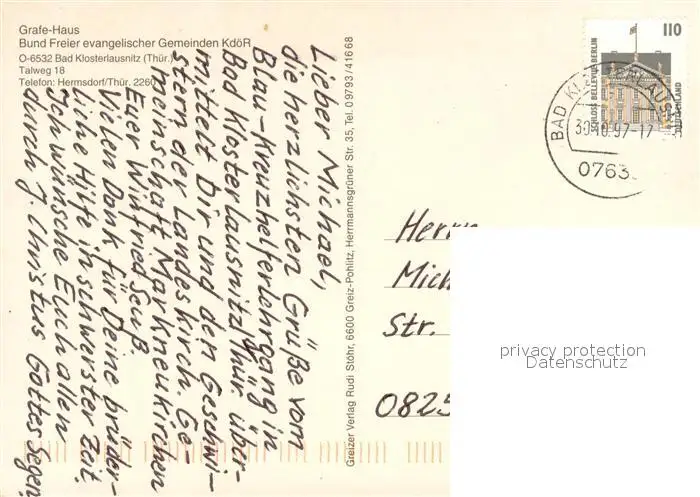 Grafe-Haus
Bund Freier evangelischer Gemeinden KdöR
O-6532 Bad Klosterlausnitz (Thür.)
Talweg 18
Telefon: Hermsdorf/Thür. 2260
Lieber Michael,
die herzlichsten Grüße vom
Blau-Kreuzhelferlehrgang in
Bad Klosterlausnitz/Thür. über-
mittelt Dir und den Geschwi-
stern der Landeskirch. Ge-
meinschaft Markneukirchen
Euer Winfried Seuß
Vielen Dank für Deine brüder-
liche Hilfe in schwerster Zeit.
Ich wünsche Euch allen
durch J. Christus Gottes Segen.
Greizer Verlag Rudi Stöhr, 6600 Greiz-Pohlitz, Herrmannsgrüner Str. 35, Tel. 0 97 93 / 4 16 68
110
SCHLOSS BELLEVUE BERLIN
DEUTSCHLAND
BAD
30.10.97-17
0763
Herrn
Mich
Str.
0825
privacy protection
Datenschutz